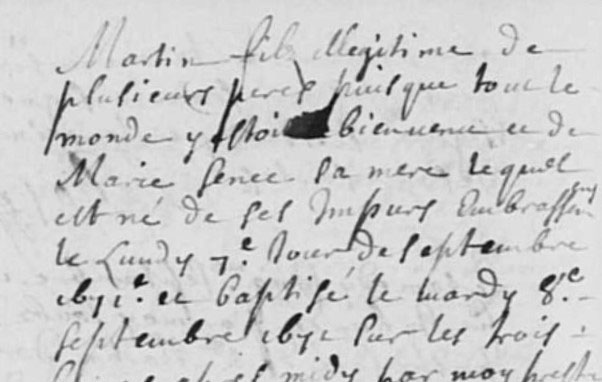 Martin fils Illegitime de
plusieurs peres puisque tout le
monde y estoit bienvenu et de
Marie Genee sa mere lequel
est né de ses Impurs Embrassemens
le Lundy 7.e Jour de septembre
1671. et baptisé le mardy 8.e
septembre 1671 sur les trois
heures apres midy par moy prestre